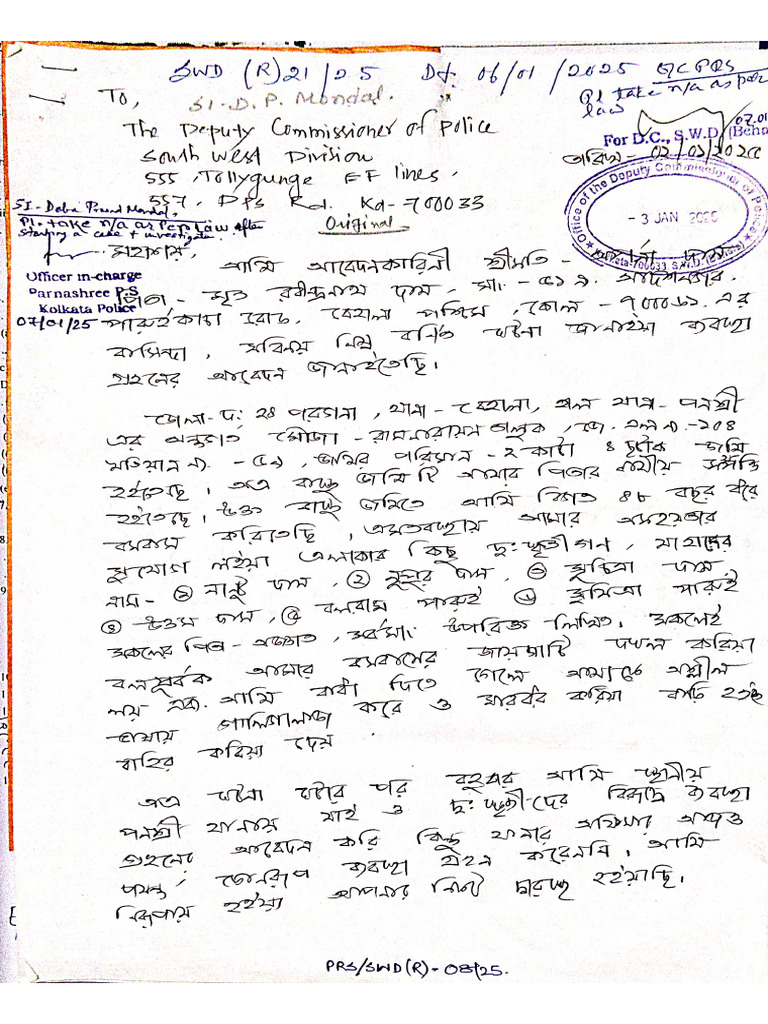 SWD (R) 21/25 Dt. 06/01/2025 OC PRS
Pl take n/a as per law
To, SI. D.P. Mondal.
The Deputy Commissioner of Police
07.01
For D.C., S.W.D. (Beha
South West Division
তারিখ - 02/01/2025
555, Tollygunge EF lines,
557, DPS Rd. Kol-700033
Office of the Deputy Commissioner of Police
- 3 JAN 2025
Kolkata-700033 S.W.D. (Behala)
SI - Deba Prasad Mondal,
Pl. take n/a as per law after
starting a case & investigate.
Original
Officer in-charge
Parnashree P.S
Kolkata Police
07/01/25
মহাশয়,
আমি আবেদনকারিনী শ্রীমতি - দাস
পিতা - মৃত রবীন্দ্রনাথ দাস, সাং - ৫১৯,
পারুইকাটা রোড, বেহালা পশ্চিম, কোল - ৭০০০৬১ এর
বাসিন্দা, সবিনয় নিম্ন বর্নিত ঘটনা জানাইয়া ব্যবস্থা
গ্রহনের আবেদন জানাইতেছি।
জেলা - দঃ ২৪ পরগনা, থানা - বেহালা, হাল থানা - পর্নশ্রী
এর অন্তর্গত মৌজা - রামনারায়ন তালুক, জে. এল নং - ২০৪
খতিয়ান নং - জমির পরিমান - ২ কাটা ৪ ছটাক জমি
হইতেছে। অত্র বাস্তু জমিটি আমার পিতার স্বর্গীয় সম্পত্তি
হইতেছে। উক্ত বাস্তু জমিতে আমি বিগত ৪৮ বছর ধরে
বসবাস করিতেছি, এমতবস্থায় আমার অসহায়তার
সুযোগ লইয়া এলাকার কিছু দুঃষ্কৃতীগন, যাহাদের
নাম - ① দাস, ② নুপুর দাস, ③ সুচিত্রা দাস,
④ উত্তম দাস, ⑤ বলরাম পারুই ⑥ সুমিত্রা পারুই
সকলের পিতা - অজ্ঞাত, সর্বসাং উপরিক্ত লিখিত। সকলেই
বলপূর্বক আমার বসবাসের জায়গাটি দখল করিয়া
লয় এবং আমি বাধা দিতে গেলে আমাকে অশ্লীল
ভাষায় গালিগালাজ করে ও মারধর করিয়া বাড়ি হইতে
বাহির করিয়া দেয়।
অত্র ঘটনা ঘটার পর বহুবার আমি স্থানীয়
পর্নশ্রী থানায় যাই ও দুঃষ্কৃতীদের বিরুদ্ধে ব্যবস্থা
গ্রহনের আবেদন করি কিন্তু থানার অফিসার আজও
পর্যন্ত কোনরূপ ব্যবস্থা গ্রহন করেননি। আমি
নিরুপায় হইয়া আপনার নিকট দ্বারস্থ হইয়াছি।
PRS/SWD(R)-08/25.